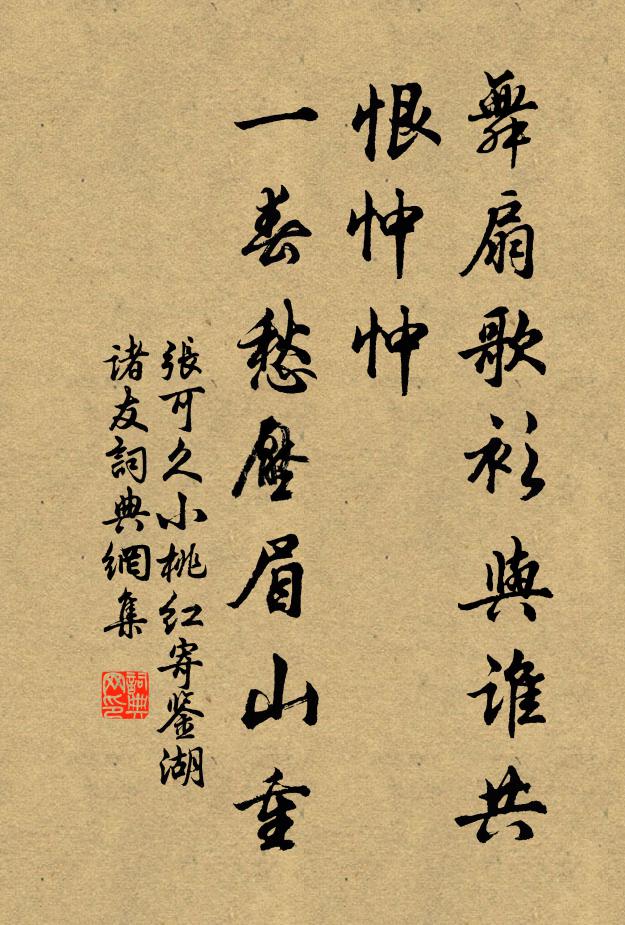 舞扇歌衫與誰共
恨忡忡
一春愁壓眉山重
張可久小桃紅寄鑒湖
諸友詞典網集
詞典网印